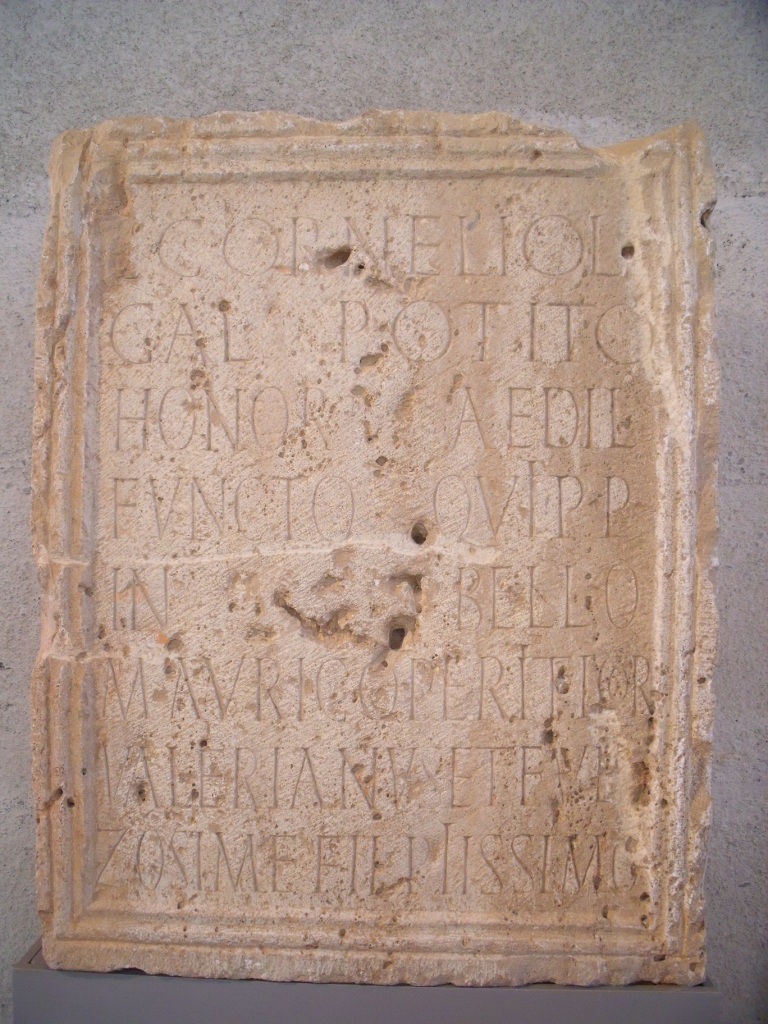 L CORNELIO L
GAL POTITO
HONOR AEDIL
FVNCTO QVI PP
IN BELLO
MAVRICO PERIIT IVNIOR
VALERIANVS ET FVL
ZOSIME FIL PIISSIMO